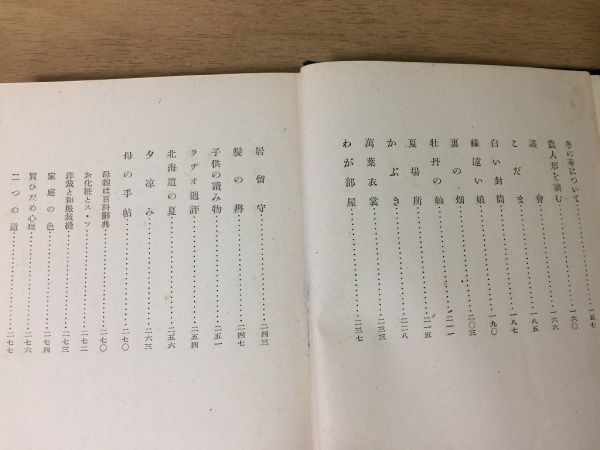 冬の海について…………一五七
農人形を讀む…………一六〇
議會…………一六六
こだま…………一八五
白い封筒…………一八七
緣遠い娘…………一九〇
裏の畑…………二〇三
牡丹の軸…………二一一
夏場所…………二一五
かぶき…………二二八
萬葉衣裳…………二三三
わが部屋…………二三七
居留守…………二四三
髮の辨…………二四七
子供の讀み物…………二五一
ラヂオ週評…………二五四
北海道の夏…………二五六
夕凉み…………二六三
母の手帖…………二七〇
母親は百科辭典…………二七〇
お化粧とス・フ…………二七二
洋裝と和服裁縫…………二七三
家庭の色…………二七四
買ひだめ心理…………二七六
二つの道…………二七七